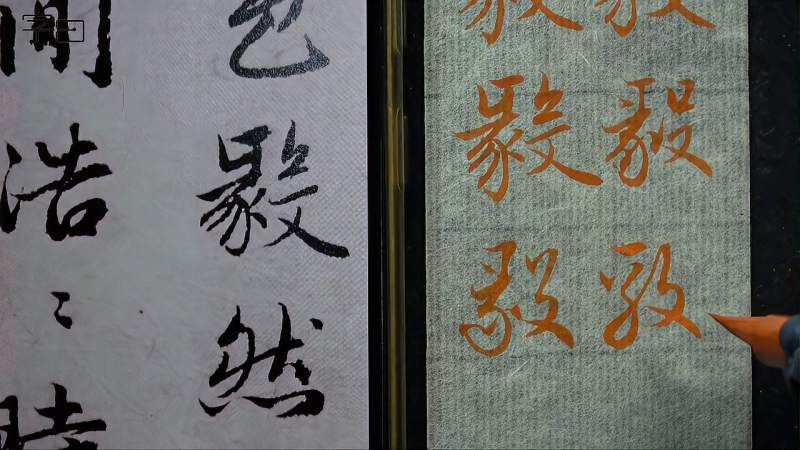 毅毅毅
毅毅毅
色毅然
間浩〻